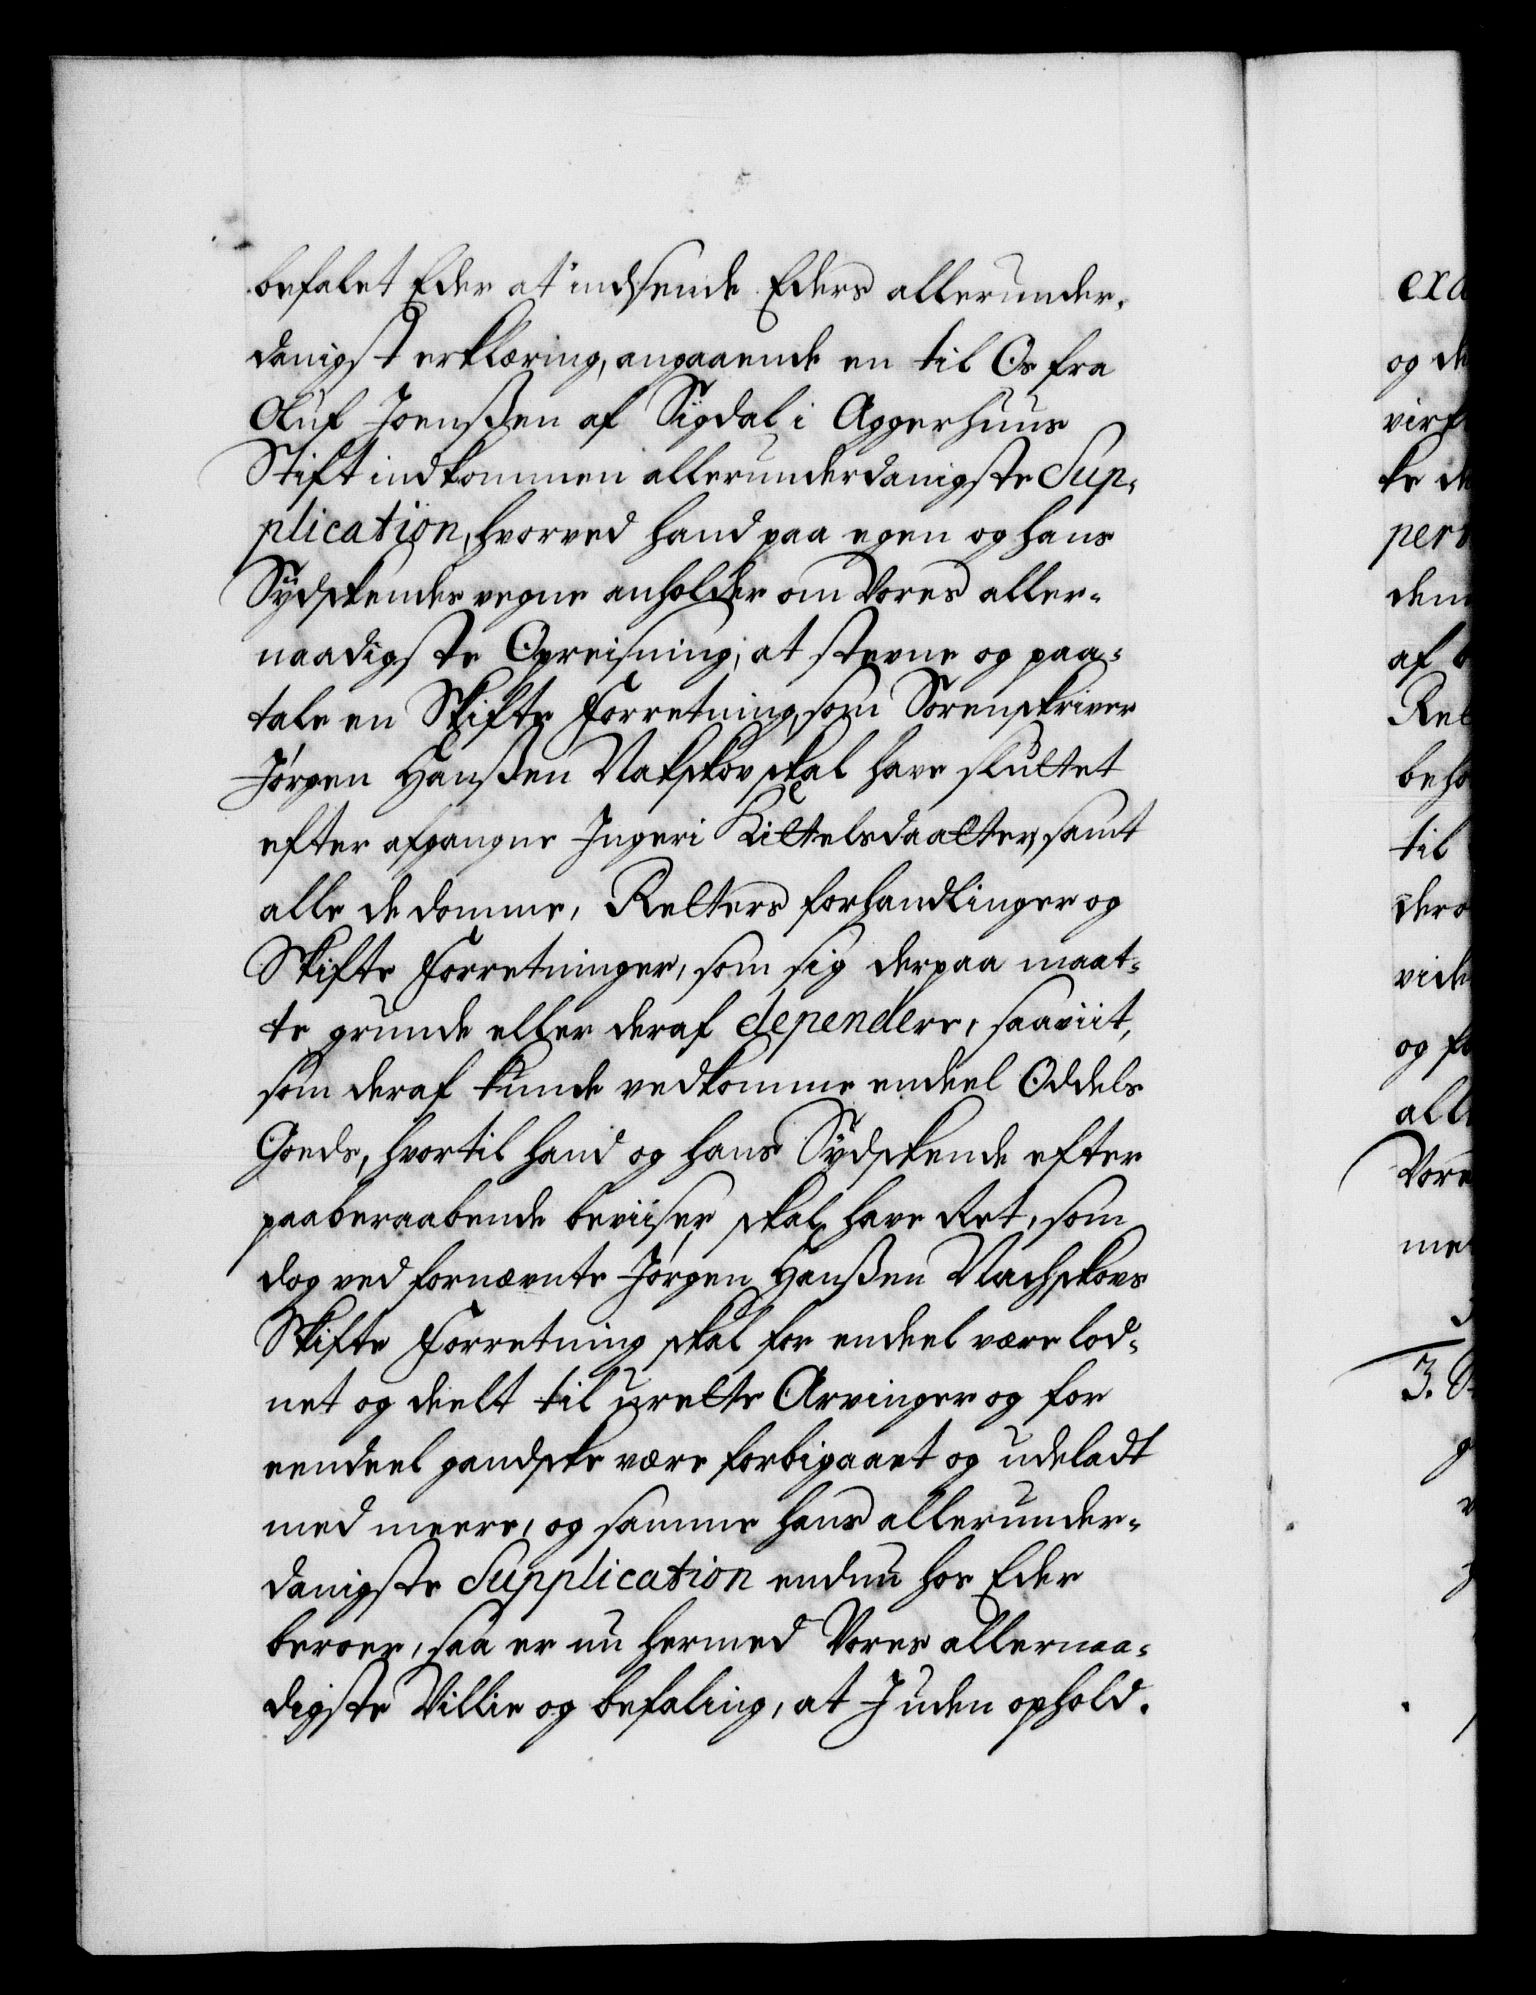 befalet Eder at indsende Eders allerunder-
danigst erklæring, angaaende en til Os fra
Oluf Joenßen af Sigdal i Aggerhuus
Stift indkommen allerunderdanigste Sup-
plication, hvorved hand paa egen og hans
Sydskendes vegne anholder om Vores aller-
naadigste Opreisning, at stevne og paa-
tale en Skifte Forretning, som Sorenskriver
Jørgen Hanßen Nakskov skal have sluttet
efter afgangne Ingeri Kittelsdaatter, samt
alle de domme, Retters forhandlinger og
Skifte Forretninger, som sig derpaa maat-
te grunde eller deraf dependere, saaviit,
som deraf kunde vedkomme endeel Oddels
Goeds, hvortil hand og hans Sydskende efter
paaberaabende beviiser skal have Ret, som
dog ved fornævnte Jørgen Hanßen Nachskovs
Skifte Forretning skal for endeel være lod-
net og deelt til urette Arvinger og for
eendeel gandske være forbigaaet og udeladt
med meere, og samme hans allerunder-
danigste Supplication endnu hos Eder
beroer, saa er nu hermed Vores allernaa-
digste Villie og befaling, at I uden ophold.
exa
og de
virk
te de
pers
dem
af
Ret
beho
til
dero
vide
og fo
alle
Vore
med
3.